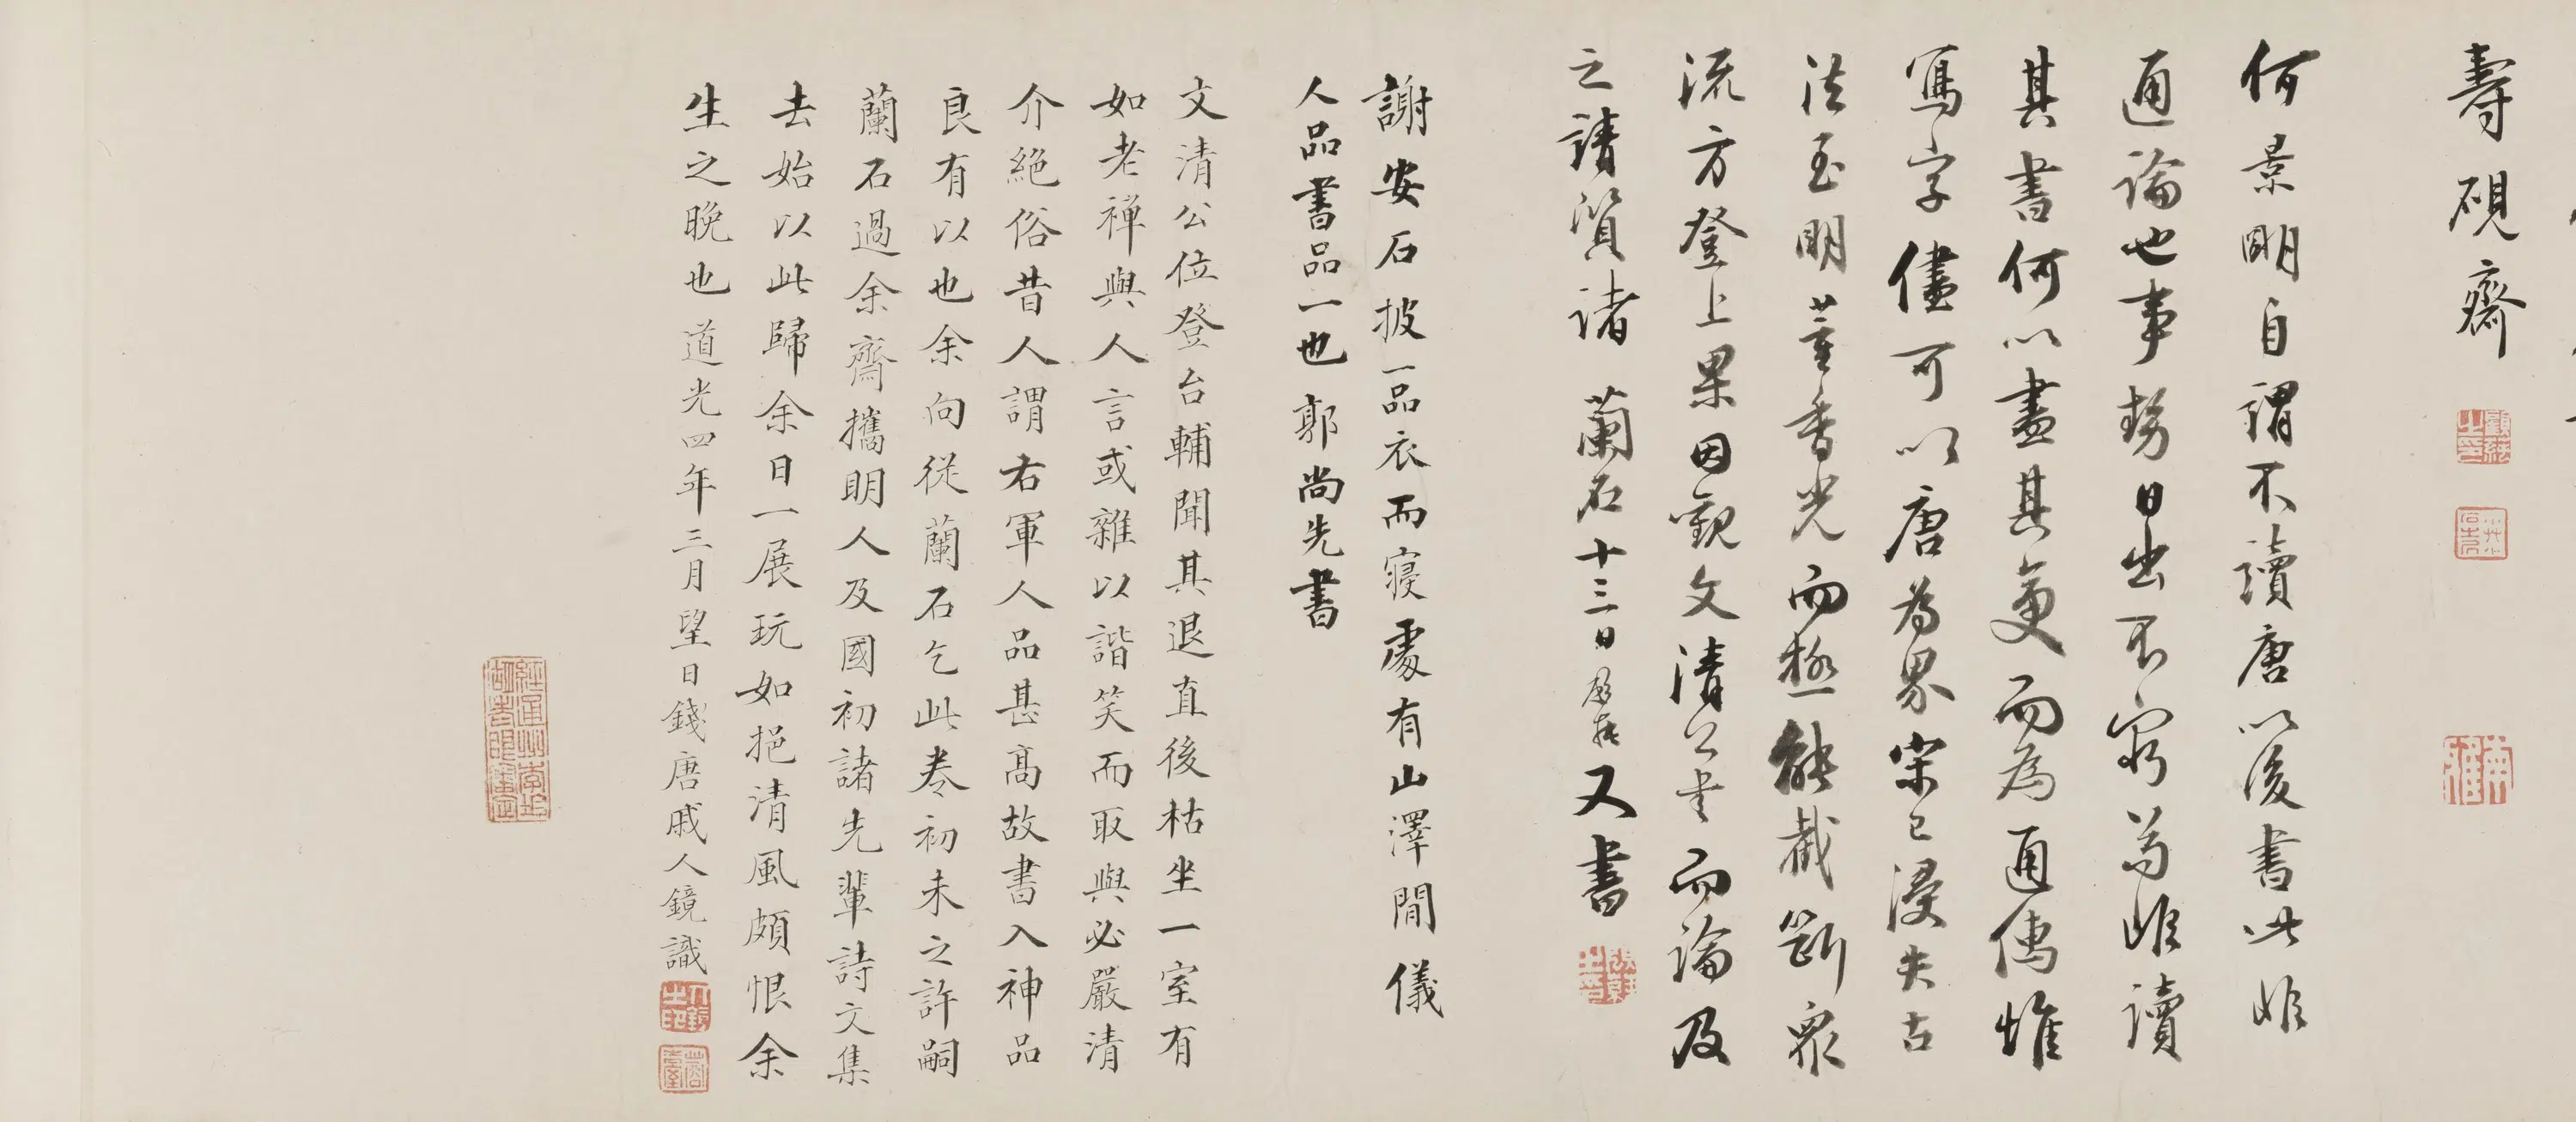 壽硯齋
何景明自謂不讀唐以後書此非
通論也事勢日出不窮若非讀
其書何以盡其變而為通儒惟
寫字儘可以唐為界宋已浸失古
法至明董香光而極能截斷眾
流方登上果因觀文清公書而論及
之請質諸 蘭石 十三日 又書
謝安石披一品衣而寢處有山澤閒儀
人品書品一也 郭尚先書
文清公位登台輔聞其退直後枯坐一室有
如老禪與人言或雜以諧笑而取與必嚴清
介絕俗昔人謂右軍人品甚高故書入神品
良有以也余向從蘭石乞此卷初未之許嗣
蘭石過余齋攜明人及國初諸先輩詩文集
去始以此歸余日一展玩如挹清風頗恨余
生之晚也道光四年三月望日錢唐戚人鏡識